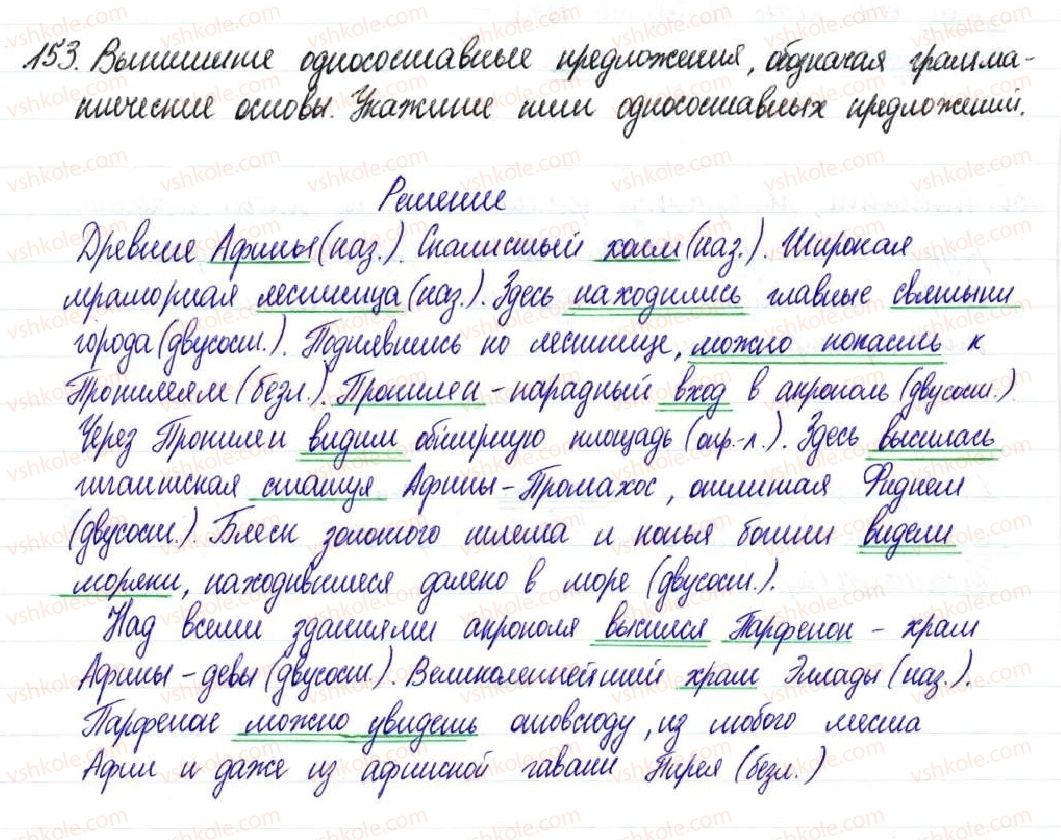 153. Выпишите односоставные предложения, обозначая грамма-
тические основы. Укажите тип односоставных предложений.
Решение
Древние Афины (наз.). Скалистый холм (наз.). Широкая
мраморная лестница (наз.). Здесь находились главные святыни
города (двусост.). Поднявшись по лестнице, можно попасть к
Пропилеям (безл.). Пропилеи - парадный вход в акрополь (двусост.).
Через Пропилеи видим обширную площадь (опр.-л.). Здесь высилась
гигантская статуя Афины - Промахос, отлитая Фидием
(двусост.). Блеск золотого шлема и копья богини видели
моряки, находившиеся далеко в море (двусост.).
Над всеми зданиями акрополя высился Парфенон - храм
Афины - девы (двусост.). Великолепнейший храм Эллады (наз.).
Парфенон можно увидеть отовсюду, из любого места
Афин и даже из афинской гавани Пирея (безл.)
vshkole.com